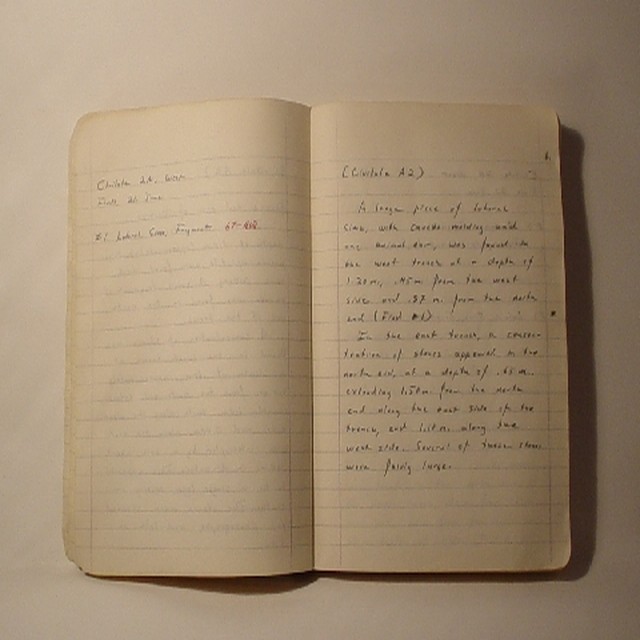 Civitate 2A, West
Finds 21 June
#1 Lateral Sima, Fragment 67-468
1.
(Civitate A2)
A large piece of lateral
sima, with cavetto molding and
one animal ear, was found in
the west trench at a depth of
1.20 m, .45 m from the west
side and .87 m from the north
end (Find #1)
In the east trench, a concen-
tration of stones appeared in the
north end, at a depth of .65 m.
extending 1.50 m. from the north
end along the east side of the
trench, and 1.10 m. along the
west side. Several of these stones
were fairly large.